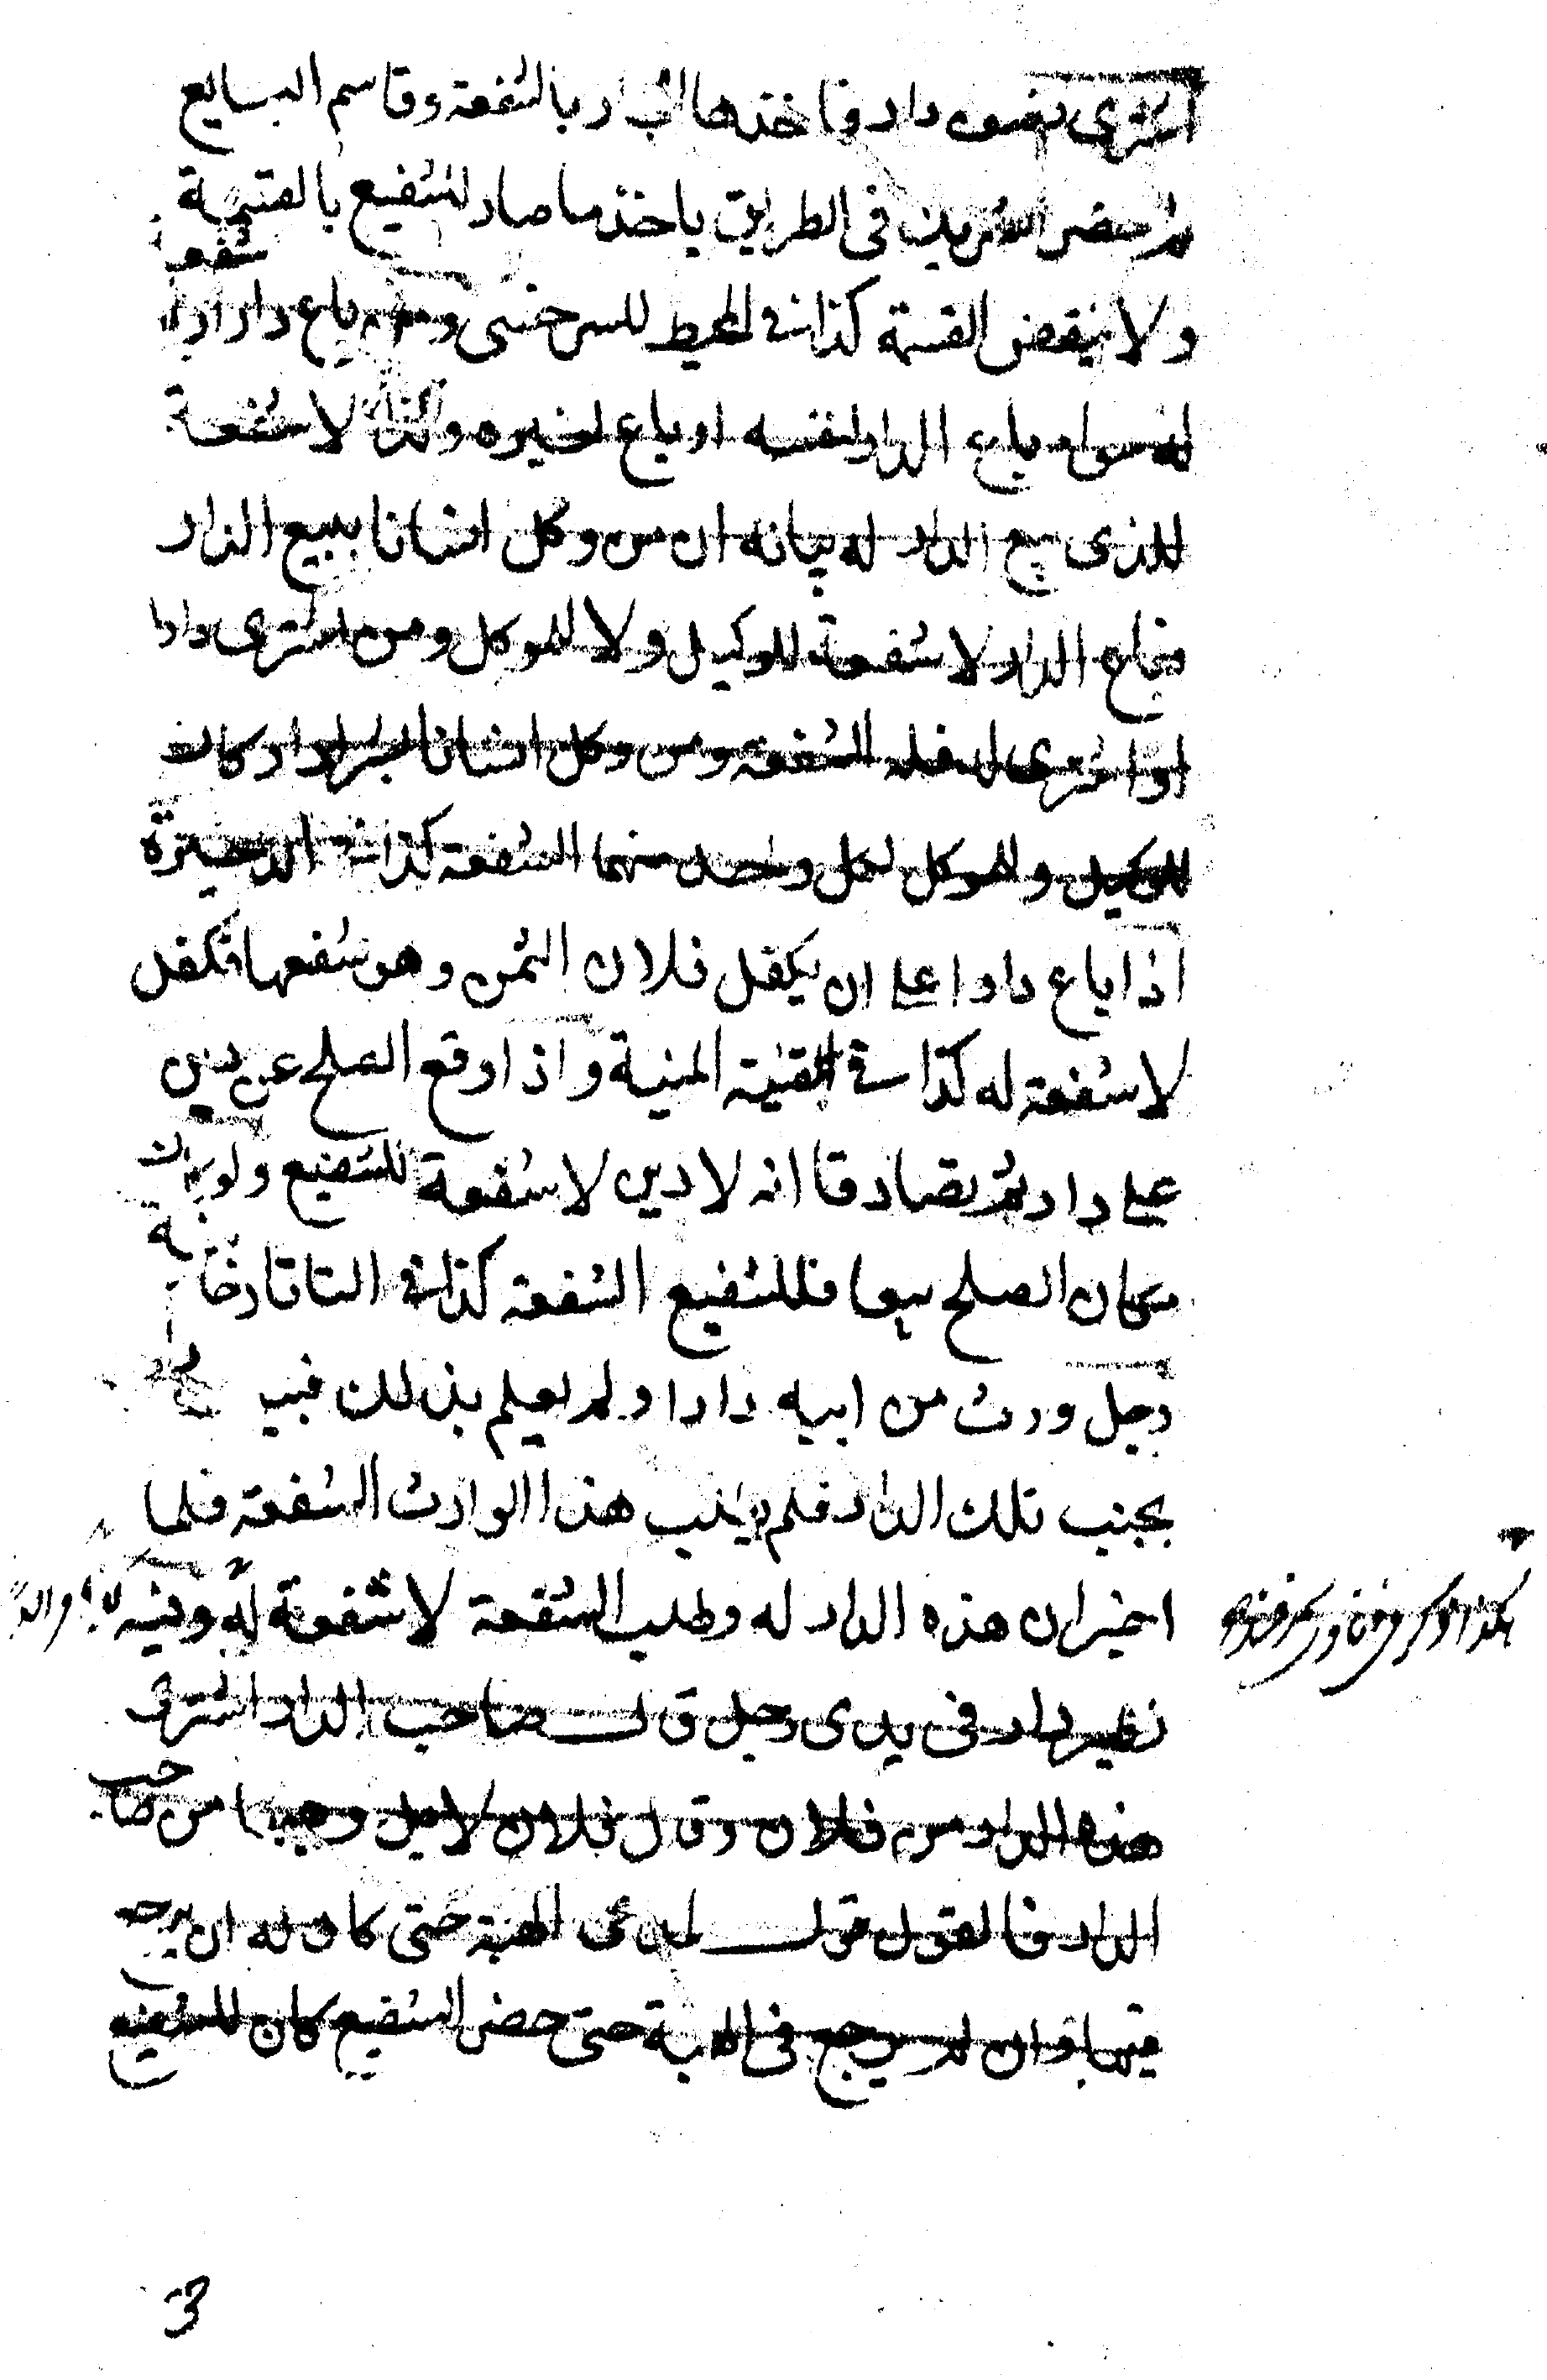 اشترى نصف دار فاخذها الجار بالشفعة وقاسم البايع
ثم حضر الشريك فى الطريق ياخذ ما صار للشفيع بالقسمة
ولا ينقض القسمة كذا فى المحيط للسرخسى ومن باع دارا لا شفعة
له سواء باع الدار لنفسه او باع لغيره وكذا لا شفعة
للذى بيع الدار له بيانه ان من وكل انسانا ببيع الدار
فباع الدار لا شفعة للوكيل ولا للموكل ومن اشترى دارا
او اشترى له فله الشفعة ومن وكل انسانا بشراء دار كان
للوكيل وللموكل لكل واحد منهما الشفعة كذا فى الذخيرة
اذا باع دارا على ان يكفل فلان الثمن وهو شفيعها فكفل
لا شفعة له كذا فى القنية المنية واذا وقع الصلح عن دين
على دار ثم تصادقا انه لا دين لا شفعة للشفيع ولو كان
مكان الصلح بيعا فللشفيع الشفعة كذا فى التاتارخانية
رجل ورث من ابيه دارا ولم يعلم بذلك فبيع
بجنب تلك الدار فلم يطلب هذا الوارث الشفعة فلما
اخبر ان هذه الدار له وطلب الشفعة لا شفعة له وفيه
نظير دار فى يدى رجل قال صاحب الدار اشتريت
هذه الدار من فلان وقال فلان لا بل وهبتها من صاحب
الدار فالقول قول مدعى الهبة حتى كان له ان يرجع
فيها وان لم يرجع فى الهبة حتى حضر الشفيع كان للشفيع